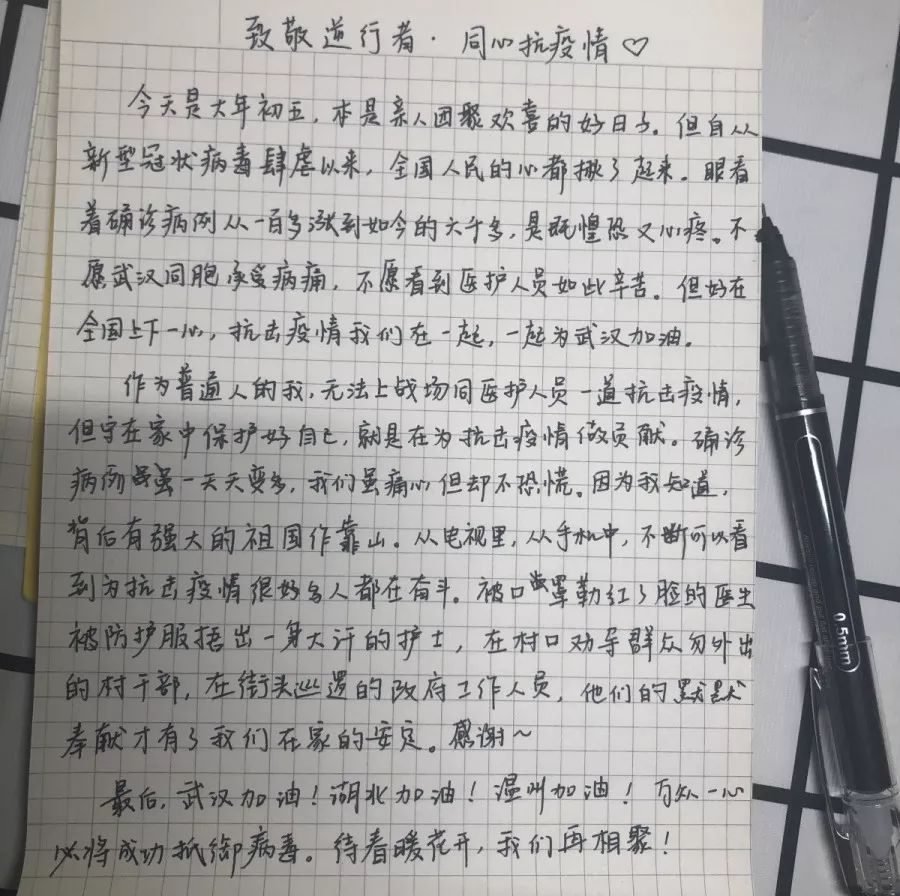 致敬逆行者·同心抗疫情♡
今天是大年初五，本是亲人团聚欢喜的好日子。但自从
新型冠状病毒肆虐以来，全国人民的心都揪了起来。眼看
着确诊病例从一百多涨到如今的六千多，是既惶恐又心疼。不
愿武汉同胞承受病痛，不愿看到医护人员如此辛苦。但好在
全国上下一心，抗击疫情我们在一起，一起为武汉加油。
作为普通人的我，无法上战场同医护人员一道抗击疫情，
但守在家中保护好自己，就是在为抗击疫情做贡献。确诊
病例虽一天天变多，我们虽痛心但却不恐慌。因为我知道，
背后有强大的祖国作靠山。从电视里，从手机中，不断可以看
到为抗击疫情很好多人都在奋斗。被口罩勒红了脸的医生
被防护服捂出一身大汗的护士，在村口劝导群众勿外出
的村干部，在街头巡逻的政府工作人员，他们的默默
奉献才有了我们在家的安定。感谢~
最后，武汉加油！湖北加油！温州加油！万众一心
必将成功抵御病毒。待春暖花开，我们再相聚！
0.5mm